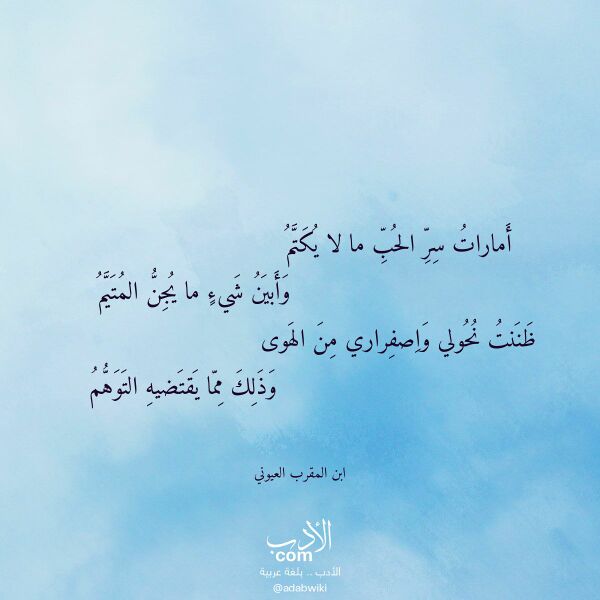 أَماراتُ سِرِّ الحُبِّ ما لا يُكَتَّمُ
وَأَبيَنُ شَيءٍ ما يُجِنُّ المُتَيَّمُ
ظَنَنتُ نُحُولي وَاِصفِراري مِنَ الهَوى
وَذَلِكَ مِمّا يَقتَضيهِ التَوَهُّمُ
ابن المقرب العيوني
الأدب
com
الأدب .. بلغة عربية
@adabwiki